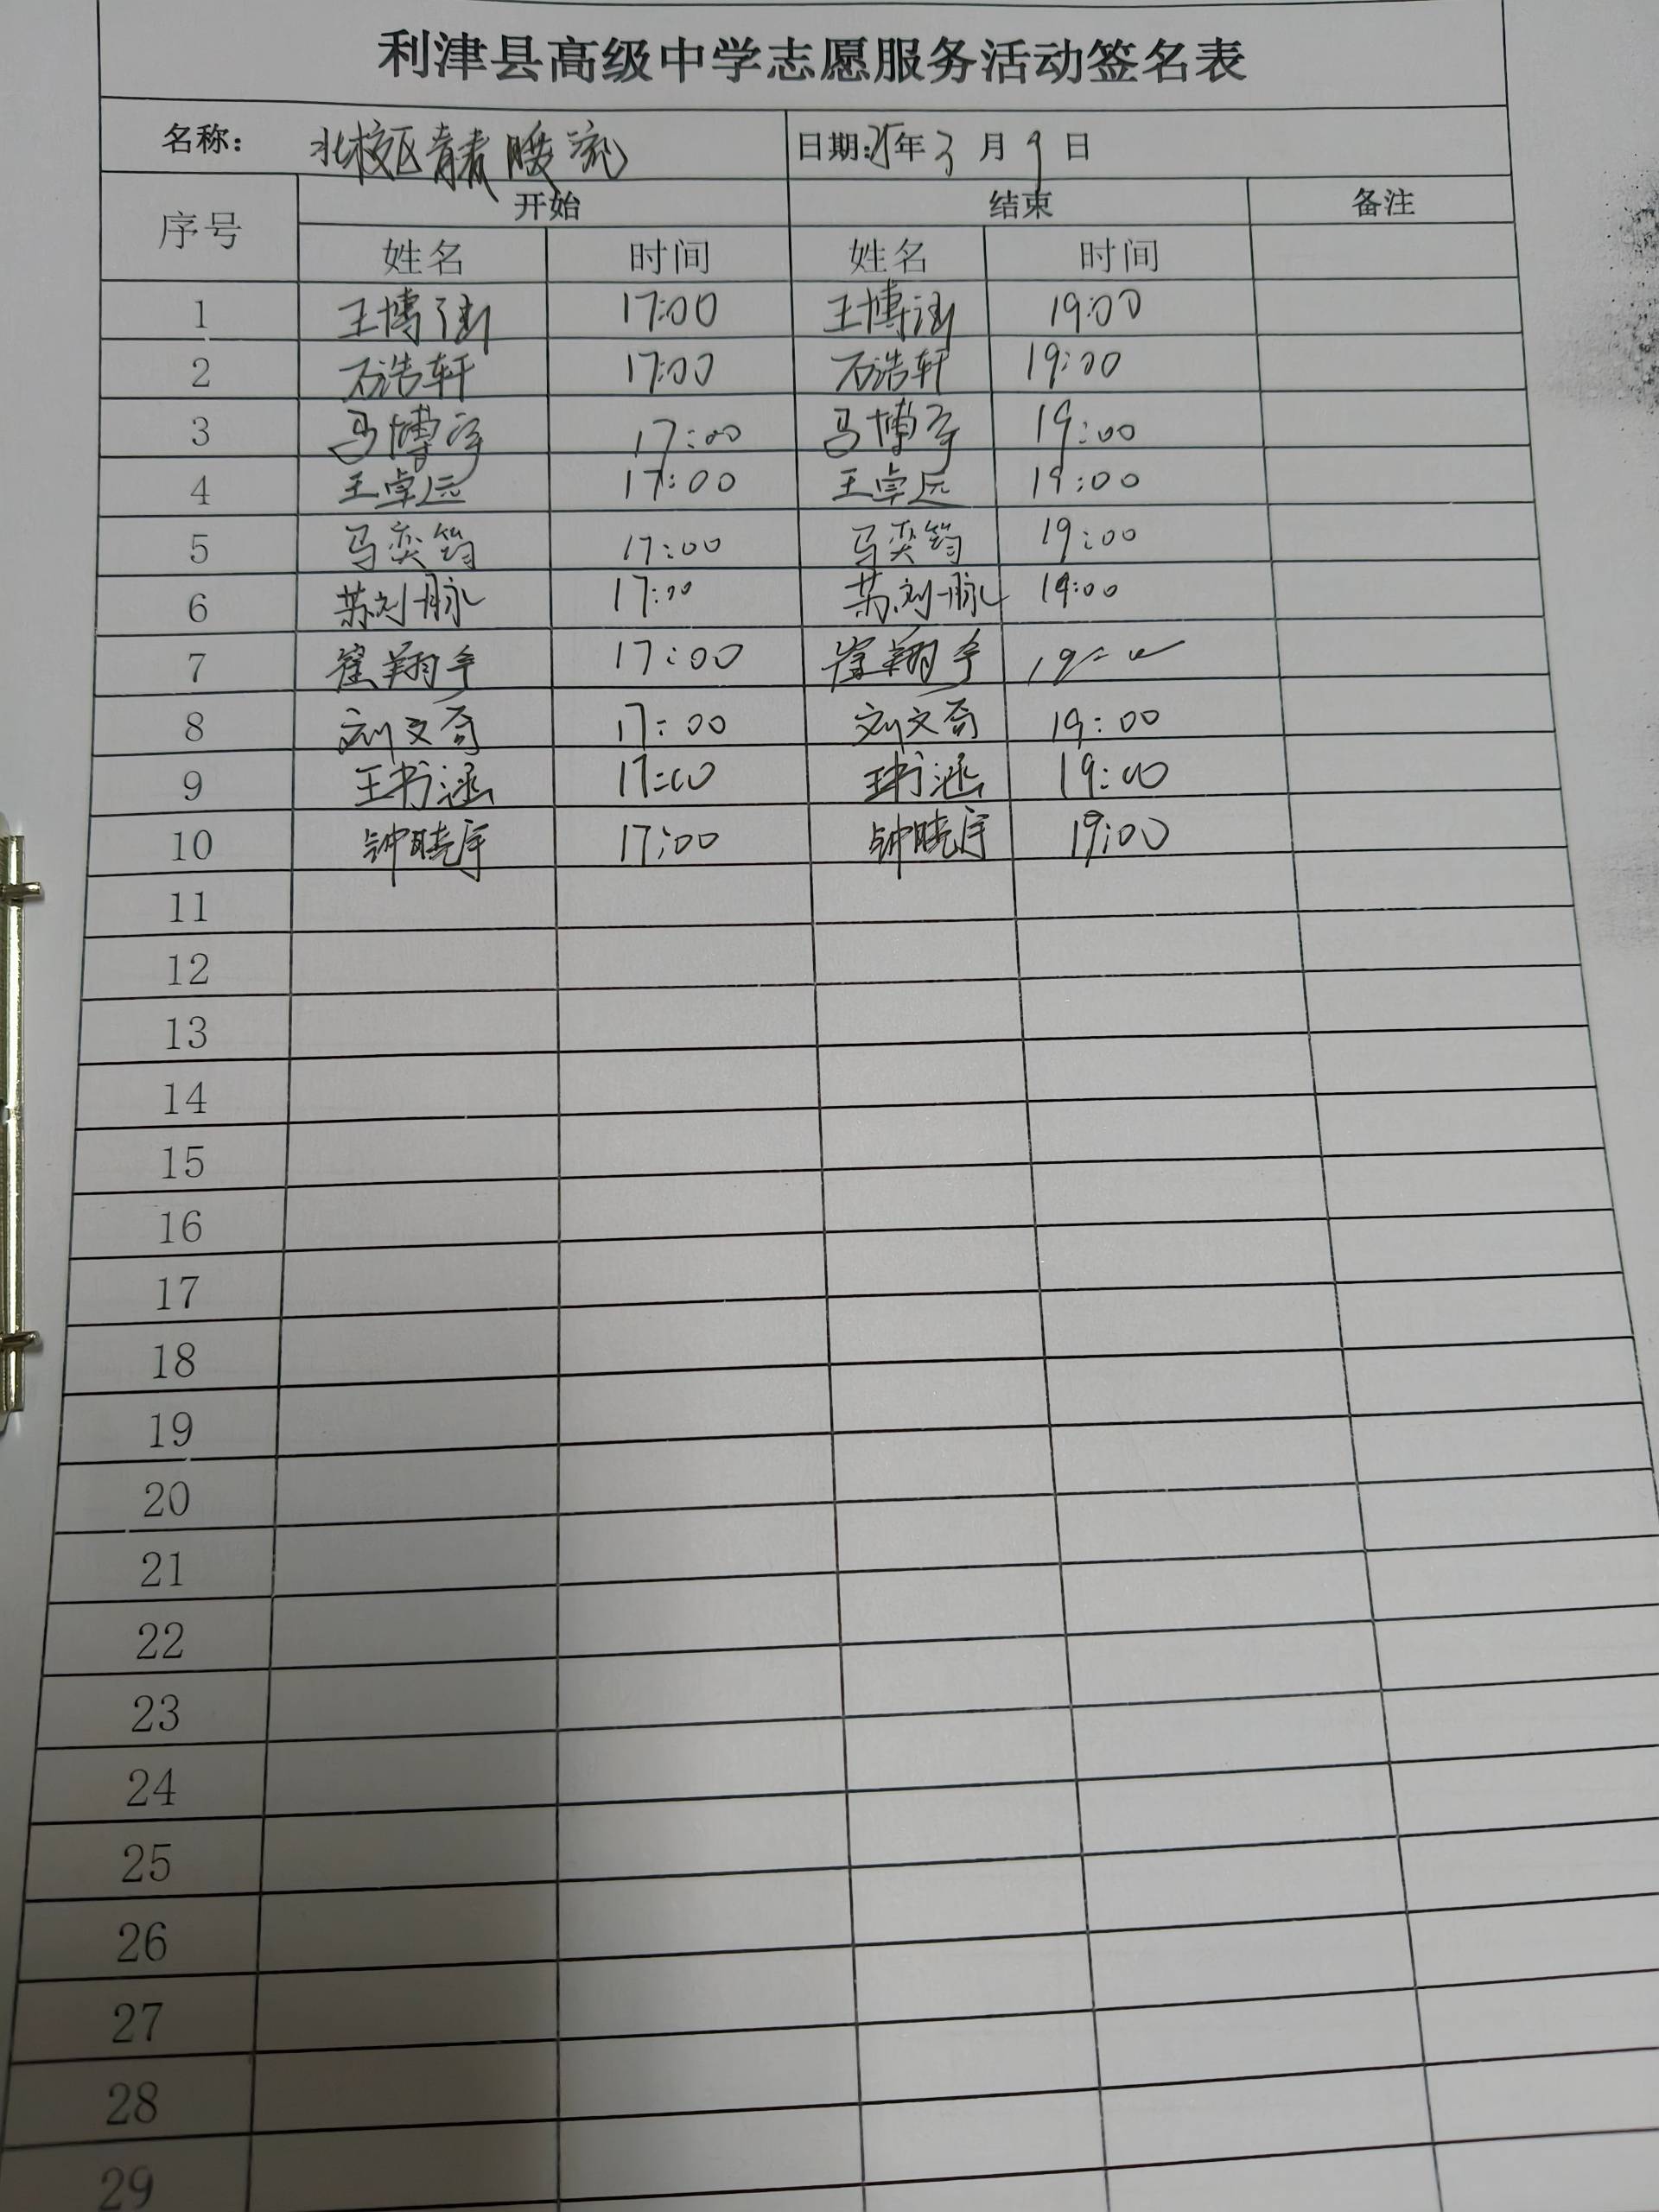 利津县高级中学志愿服务活动签名表
名称： 北校区青春暖流 日期：25年3月9日
序号 开始 结束 备注
姓名 时间 姓名 时间
1 王博涵 17:00 王博涵 19:00
2 石浩轩 17:00 石浩轩 19:00
3 马博宇 17:00 马博宇 19:00
4 王卓远 17:00 王卓远 19:00
5 马奕筠 17:00 马奕筠 19:00
6 苏刘脉 17:00 苏刘脉 19:00
7 崔翔宇 17:00 崔翔宇 19:00
8 刘文奇 17:00 刘文奇 19:00
9 王书涵 17:00 王书涵 19:00
10 钟晓宇 17:00 钟晓宇 19:00
11
12
13
14
15
16
17
18
19
20
21
22
23
24
25
26
27
28
29